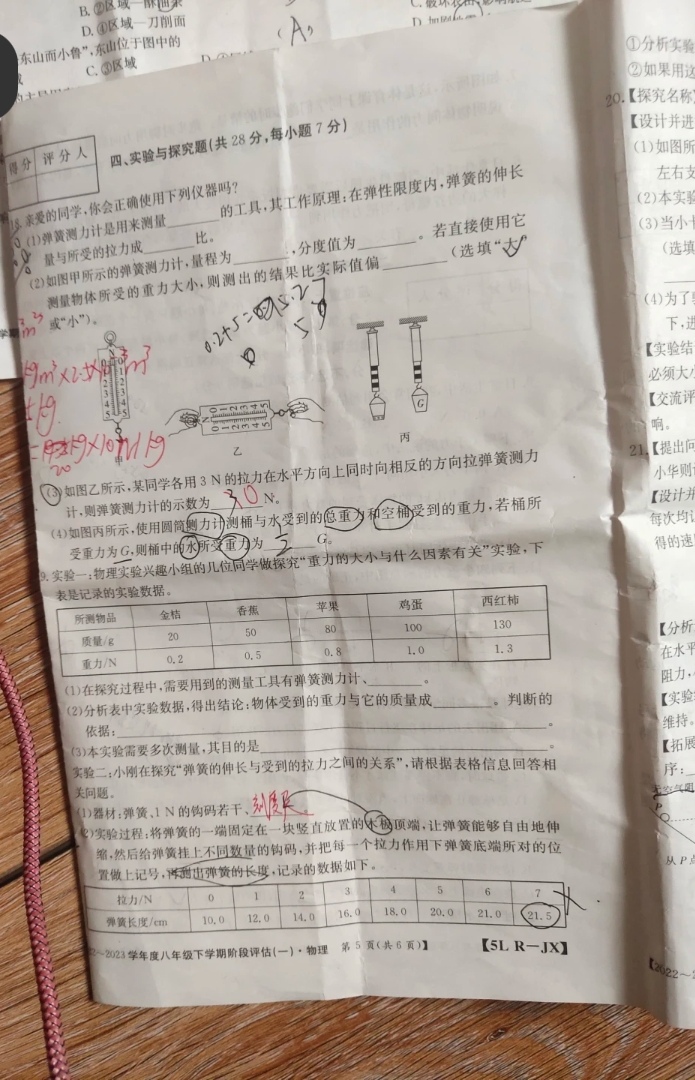 B.②区域—
D.④区域—刀削面
(A)
东山而小鲁",东山位于图中的
C.③区域
得分 评分人
四、实验与探究题(共28分,每小题7分)
18.亲爱的同学,你会正确使用下列仪器吗?
(1)弹簧测力计是用来测量______的工具,其工作原理:在弹性限度内,弹簧的伸长
量与所受的拉力成______比。
(2)如图甲所示的弹簧测力计,量程为______,分度值为______。若直接使用它
测量物体所受的重力大小,则测出的结果比实际值偏______(选填"大"
或"小")。
G
乙
丙
(3)如图乙所示,某同学各用3 N的拉力在水平方向上同时向相反的方向拉弹簧测力
计,则弹簧测力计的示数为 N。
(4)如图丙所示,使用圆筒测力计测桶与水受到的总重力和空桶受到的重力,若桶所
受重力为G,则桶中的水所受重力为 G。
19.实验一:物理实验兴趣小组的几位同学做探究"重力的大小与什么因素有关"实验,下
表是记录的实验数据。
所测物品 金桔 香蕉 苹果 鸡蛋 西红柿
质量/g 20 50 80 100 130
重力/N 0.2 0.5 0.8 1.0 1.3
(1)在探究过程中,需要用到的测量工具有弹簧测力计、______。
(2)分析表中实验数据,得出结论:物体受到的重力与它的质量成______。判断的
依据:______。
(3)本实验需要多次测量,其目的是______。
实验二:小刚在探究"弹簧的伸长与受到的拉力之间的关系",请根据表格信息回答相
关问题。
(1)器材:弹簧、1 N的钩码若干、刻度尺
(2)实验过程:将弹簧的一端固定在一块竖直放置的木板顶端,让弹簧能够自由地伸
缩,然后给弹簧挂上不同数量的钩码,并把每一个拉力作用下弹簧底端所对的位
置做上记号,再测出弹簧的长度,记录的数据如下。
拉力/N 0 1 2 3 4 5 6 7
弹簧长度/cm 10.0 12.0 14.0 16.0 18.0 20.0 21.0 21.5
22~2023学年度八年级下学期阶段评估(一)·物理 第5页(共6页)】 【5L R-JX】
①分析实验
②如果用这
20.【探究名称
【设计并进
(1)如图所
左右支
(2)本实验
(3)当小卡
(选填
(4)为了
下,进
【实验结
必须大
【交流评
响。
21.【提出问
小华则
【设计并
每次均让
得的速
【分析
在水平
阻力,
【实验
维持。
【拓展
序:
P
从P点
【2022~2